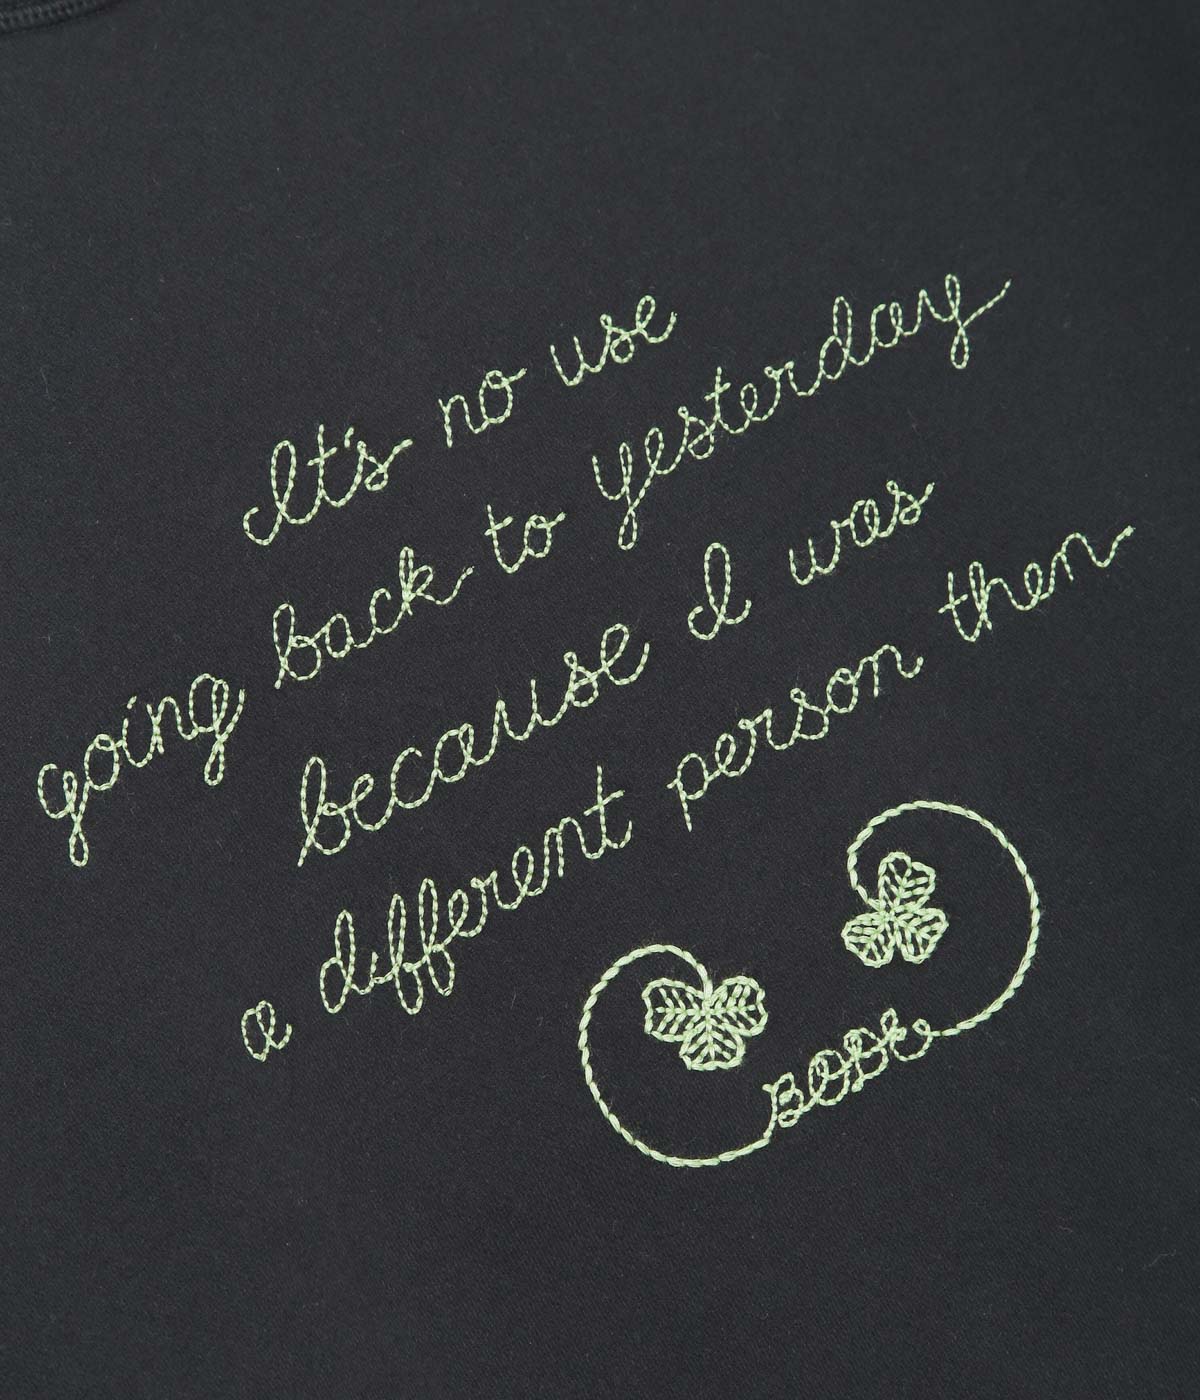 It's no use
going back to yesterday
because I was
a different person then
BODE